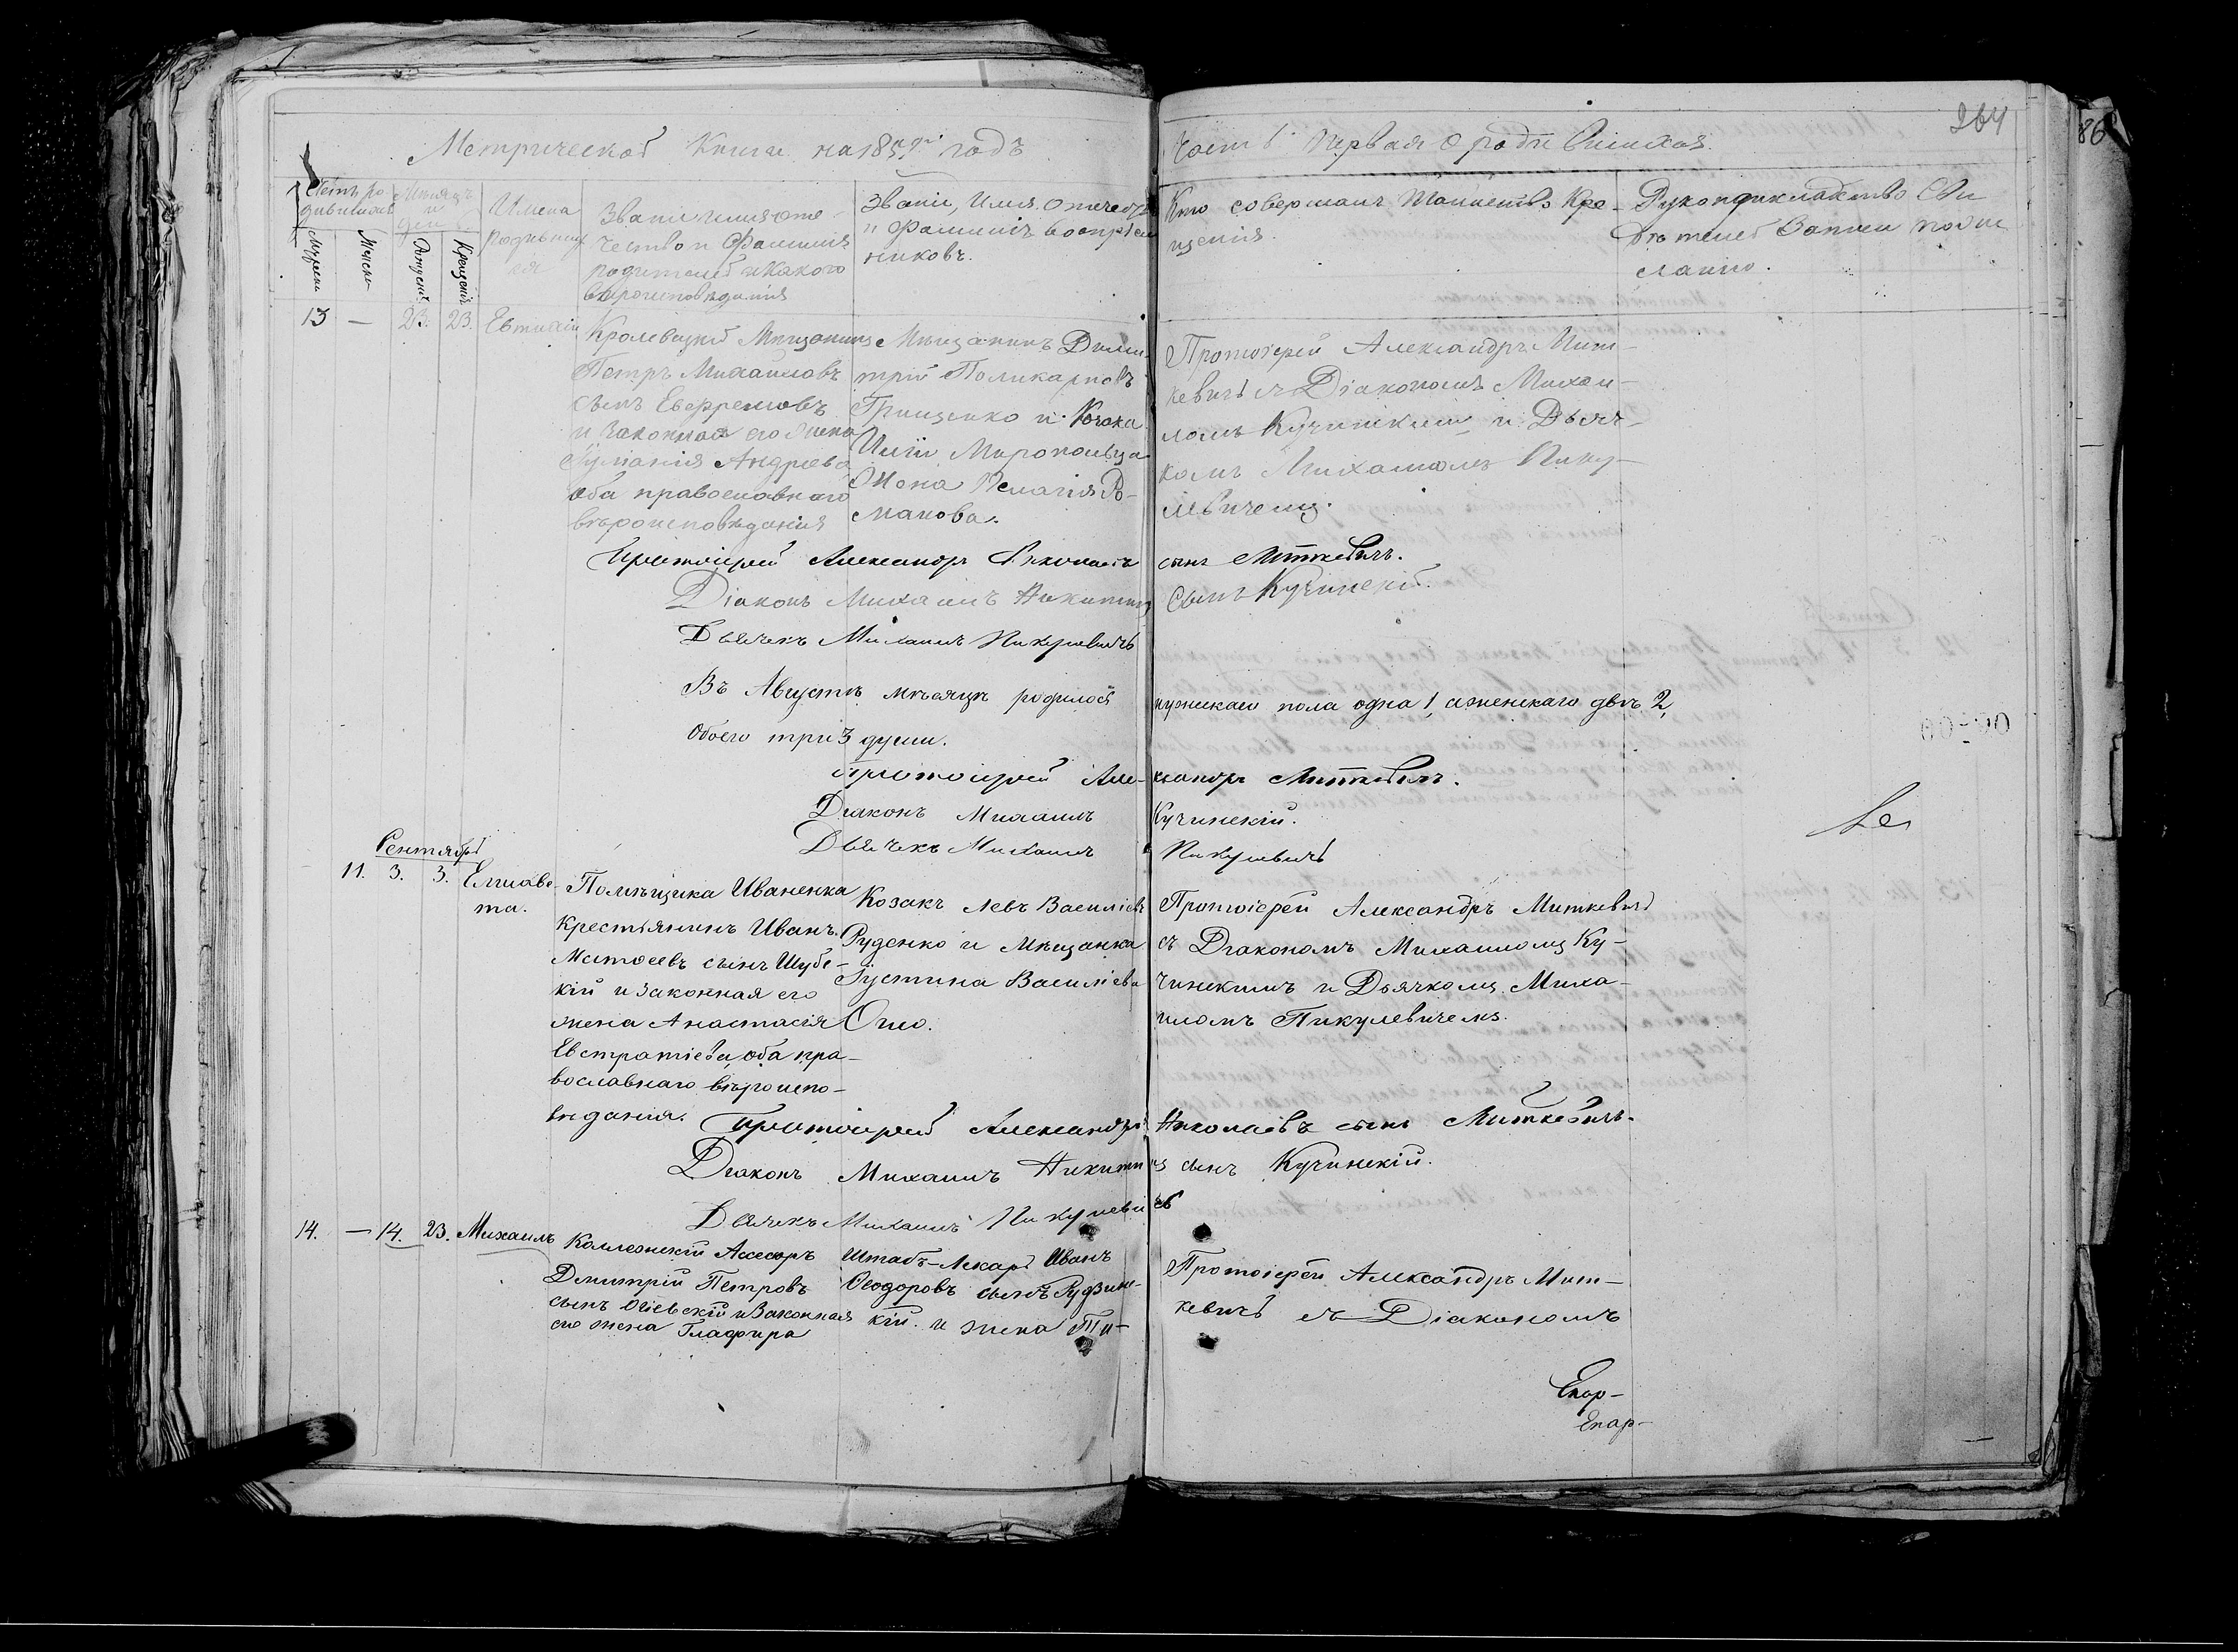 264
86
Метрической Книги на 1857й годъ
Часть Первая о родившихся.
Имена
Званіе имя отче-
чество и Фамилія
родителей и какого
вѣроисповѣданія
Званіе, Имя, Отечество
и Фамилія воспріем
никовъ.
Кто совершалъ Таинство Кре-
щенія.
Рукоприкладство Сви
дѣтелей Записи по же
ланію.
13 — 23. 23. Евтихій
Кролевецкій Мещанинъ
Петръ Михайловъ
сынъ Ефремовъ
и Законная его жена
Андреева
оба православнаго
вѣроисповѣданія
Мѣщанинъ Дими-
трій Поликарповъ
Грищенко и Козака
Иліи Миропольца
Жена Пелагія Ро-
манова.
Протоіерей Александръ Мит-
кевичь съ Діакономъ Михаи-
ломъ Кучинскимъ и Дьяч-
комъ Михаиломъ Пику-
левичемъ.
Протоіерей Александръ Николаевъ сынъ Миткевичъ.
Діаконъ Михаилъ Никитинъ Сынъ Кучинскій.
Дьячекъ Михаилъ Пикулевичь
Въ Августѣ мѣсяцѣ родилось мужескаго пола одна 1, а женскаго двѣ 2,
Обоего три 3 души.
Протоіерей Александръ Миткевичъ.
Діаконъ Михаилъ Кучинскій.
Дьячекъ Михаилъ Пикулевичь
Сентябрь
11. 3. 3. Елисаве-
та.
Помѣщика Иваненка
Крестьянинъ Иванъ
Матвеевъ сынъ Шубс-
кій и законная его
жена Анастасія
Евстратіева, оба пра-
вославнаго вѣроиспо-
вѣданія.
Козакъ Левъ Василіевъ
Руденко и Мѣщанка
Іустина Василіева
Протоіерей Александръ Миткевичь
съ Діакономъ Михаиломъ Ку-
чинскимъ и Дьячкомъ Миха-
иломъ Пикулевичемъ.
Протоіерей Александръ Николаевъ сынъ Миткевичъ.
Діаконъ Михаилъ Никитинъ сынъ Кучинскій.
Дьячекъ Михаилъ Пикулевичь
14. — 14. 23. Михаилъ
Коллежскій Ассесоръ
Димитрій Петровъ
сынъ Огіевскій и Законная
его жена Глафира
Штабъ-Лекарь Иванъ
Ѳеодоровъ сынъ Рудзин-
кій. и жена Ти-
Протоіерей Александръ Мит-
кевичь съ Діакономъ
Епар-
Епар-